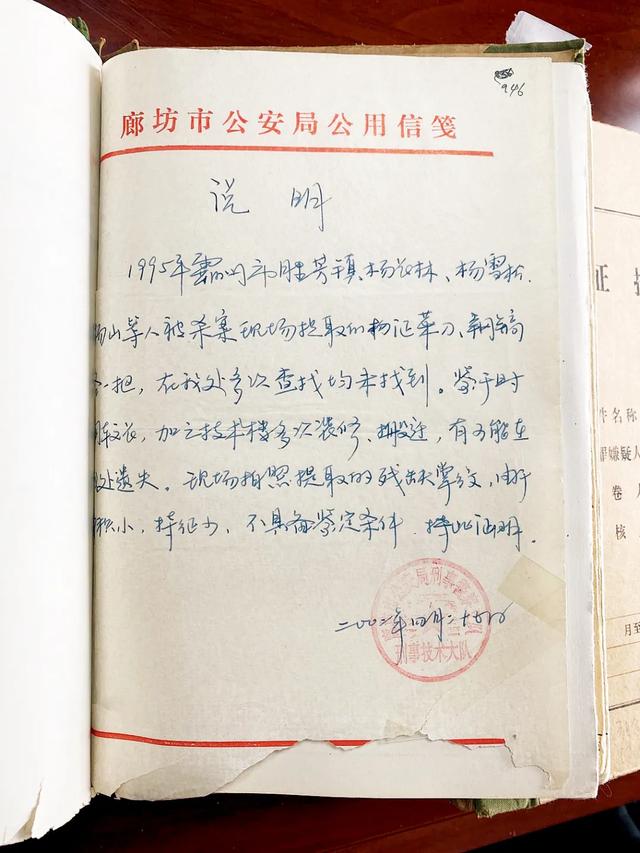 946
廊坊市公安局公用信笺
说 明
1995年霸州市胜芳镇杨效林、杨雪松、
山等人被杀案现场提取的物证菜刀、钢镐
一把，在我处多次查找均未找到。鉴于时
间较长，加之技术楼多次装修、搬迁，有可能在
处遗失。现场拍照提取的残缺掌纹，由于
积小，特征少，不具备鉴定条件，特此证明。
二00二年四月二十
刑事技术大队
证
件名称
罪嫌疑人
卷
核
月至